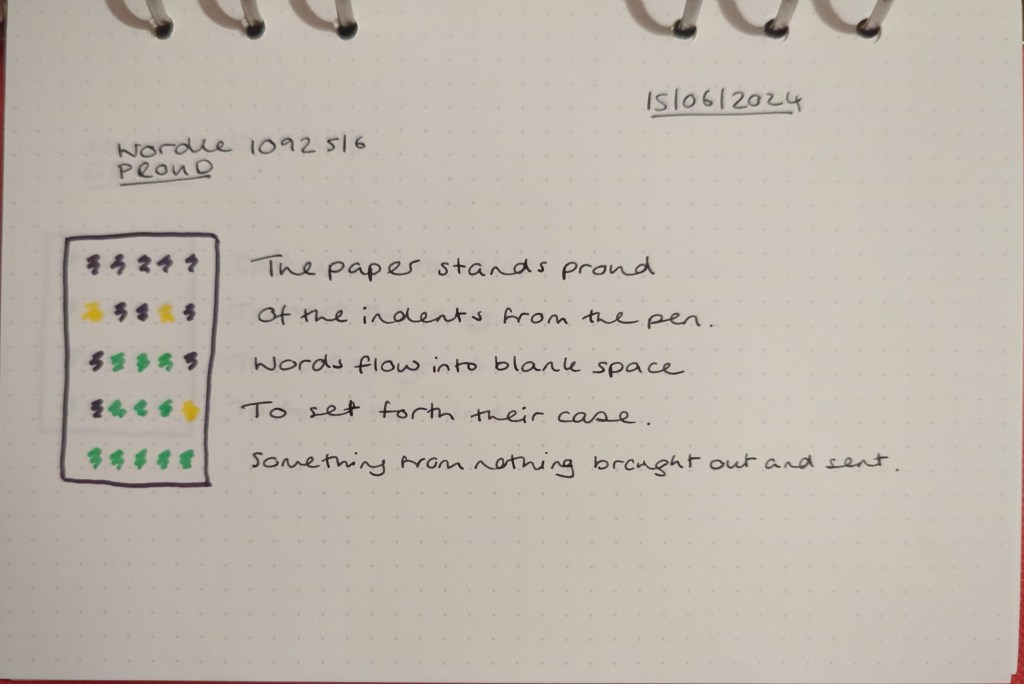 15/06/2024
Wordle 1092 5/6
PROUD
The paper stands proud
Of the indents from the pen.
Words flow into blank space
To set forth their case.
Something from nothing brought out and sent.